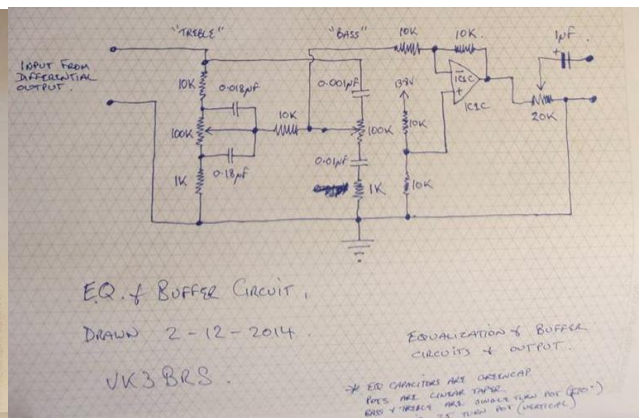 "TREBLE"
"BASS"
10K
10K.
1µF
INPUT FROM
DIFFERENTIAL
OUTPUT.
10K
0.018µF
0.001µF
13.8V
IC1C
IC1C
100K
10K
100K
10K
20K
0.18µF
0.01µF
1K
1K
10K
EQ. & BUFFER CIRCUIT,
DRAWN 2-12-2014.
VK3BRS.
EQUALIZATION & BUFFER
CIRCUITS & OUTPUT.
* EQ CAPACITORS ARE GREENCAP
POTS ARE LINEAR TAPER
BASS & TREBLE ARE SINGLE TURN POT (270°)
25 TURN POT (VERTICAL)